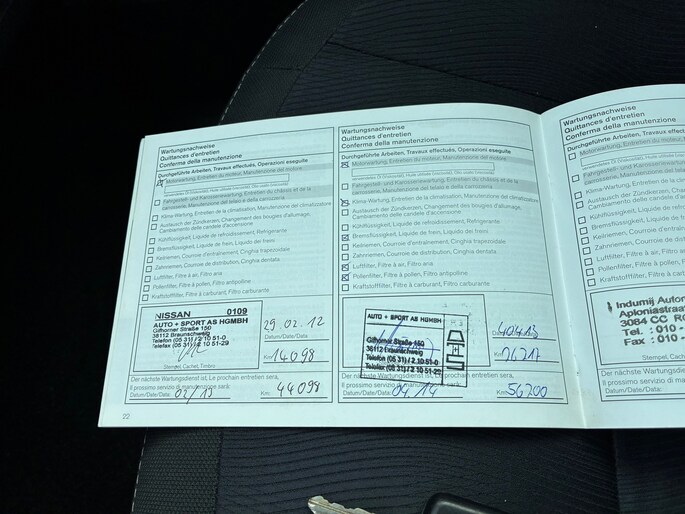 Wartungsnachweise
Quittances d'entretien
Conferma della manutenzione
Durchgeführte Arbeiten, Travaux effectués, Operazioni eseguite
Motorwartung, Entretien du moteur, Manutenzione del motore
Fahrgestell- und Karosseriewartung, Entretien du châssis et de la
carrosserie, Manutenzione del telaio e della carrozzeria
Klima-Wartung, Entretien de la climatisation, Manutenzione del climatizzatore
Austausch der Zündkerzen, Changement des bougies d'allumage,
Cambiamento delle candele d'accensione
Kühlflüssigkeit, Liquide de refroidissement, Refrigerante
Bremsflüssigkeit, Liquide de frein, Liquido dei freni
Keilriemen, Courroie d'entraînement, Cinghia trapezoidale
Zahnriemen, Courroie de distribution, Cinghia dentata
Luftfilter, Filtre à air, Filtro aria
Pollenfilter, Filtre à pollen, Filtro antipolline
Kraftstofffilter, Filtre à carburant, Filtro carburante
NISSAN 0109
AUTO + SPORT AS HGMBH
Gifhorner Straße 150
38112 Braunschweig
Telefon (05 31) / 2 10 51-0
Telefax (05 31) / 2 10 51-29
Stempel, Cachet, Timbro
29.02.12
Datum/Date/Data:
Km: 14098
Der nächste Wartungsdienst ist, Le prochain entretien sera,
Il prossimo servizio di manutenzione sarà:
Datum/Date/Data: 02/13 Km: 44098
22
Wartungsnachweise
Quittances d'entretien
Conferma della manutenzione
Durchgeführte Arbeiten, Travaux effectués, Operazioni eseguite
Motorwartung, Entretien du moteur, Manutenzione del motore
Fahrgestell- und Karosseriewartung, Entretien du châssis et de la
carrosserie, Manutenzione del telaio e della carrozzeria
Klima-Wartung, Entretien de la climatisation, Manutenzione del
Austausch der Zündkerzen, Changement des bougies d'allumage,
Cambiamento delle candele d'accensione
Kühlflüssigkeit, Liquide de refroidissement, Refrigerante
Bremsflüssigkeit, Liquide de frein, Liquido dei freni
Keilriemen, Courroie d'entraînement, Cinghia trapezoidale
Zahnriemen, Courroie de distribution, Cinghia dentata
Luftfilter, Filtre à air, Filtro aria
Pollenfilter, Filtre à pollen, Filtro antipolline
Kraftstofffilter, Filtre à carburant, Filtro carburante
AUTO + SPORT AS HGMBH
Gifhorner Straße 150
38112 Braunschweig
Telefon (05 31) / 2 10 51-0
Telefax (05 31) / 2 10 51-29
Km: 26217
Der nächste Wartungsdienst ist, Le prochain entretien sera,
Il prossimo servizio di manutenzione sarà:
Datum/Date/Data: 04/14 Km: 56200
Wartungsnachweise
Quittances d'entretien
Conferma della manutenzione
Durchgeführte Arbeiten, Travaux
Motorwartung, Entretien du
Fahrgestell- und
carrosserie, Manutenzione del
Klima-Wartung, Entretien de la
Austausch der Zündkerzen,
Cambiamento delle candele
Kühlflüssigkeit, Liquide de
Bremsflüssigkeit, Liquide de
Keilriemen, Courroie
Zahnriemen, Courroie de
Luftfilter, Filtre à air,
Pollenfilter, Filtre à
Kraftstofffilter, Filtre
Indumij
Aploniastraat
3084 CC
Tel. : 010 -
Fax : 010 -
Stempel, Cachet,
Der nächste
Il prossimo servizio
Datum/Date/Data: